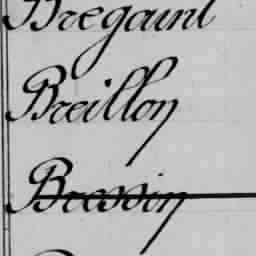 Bregaint
Breillon
Bressin